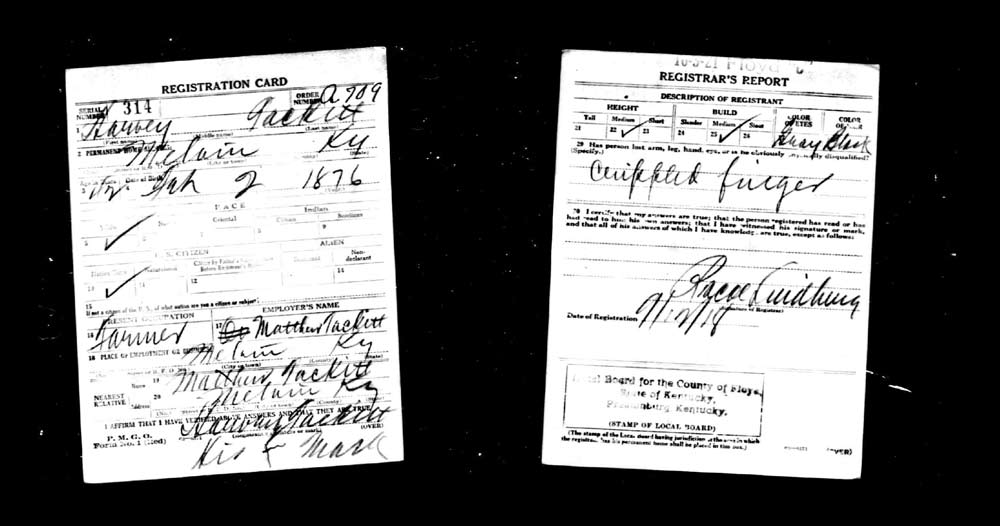 REGISTRATION CARD
SERIAL NUMBER 314
ORDER NUMBER A 709
1 Harvey Tackitt
(First name) (Middle name) (Last name)
2 PERMANENT HOME ADDRESS
Melvin Ky
Age in Years Date of Birth
3 Feb 2 1876
RACE
White Negro Oriental Indian
Citizen Noncitizen
5 ✓ 6 7 8 9
U. S. CITIZEN ALIEN
Native Born Naturalized Citizen by Father's Naturalization Before Registrant's Declarant Non-declarant
10 ✓ 11 12 14
15
If not a citizen of the U. S., of what nation are you a citizen or subject?
PRESENT OCCUPATION EMPLOYER'S NAME
16 Farmer 17 Matthew Tackitt
18 PLACE OF EMPLOYMENT OR BUSINESS
Melvin Ky
(City or town) (County) (State)
NEAREST RELATIVE
Name 19 Matthew Tackitt
Address 20 Melvin Ky
I AFFIRM THAT I HAVE VERIFIED ABOVE ANSWERS AND THAT THEY ARE TRUE
P. M. G. O.
Form No. 1 (Red)
Harvey Tackitt
(Registrant's signature or mark) (OVER)
His x Mark
REGISTRAR'S REPORT
DESCRIPTION OF REGISTRANT
HEIGHT BUILD COLOR OF EYES COLOR OF HAIR
Tall Medium Short Slender Medium Stout
21 22 ✓ 23 24 25 ✓ 26 Gray Black
29 Has person lost arm, leg, hand, eye, or is he obviously physically disqualified?
(Specify.)
Crippled finger
30 I certify that my answers are true; that the person registered has read or has had read to him his own answers; that I have witnessed his signature or mark,
and that all of his answers of which I have knowledge are true, except as follows:
(Signature of Registrar)
Date of Registration 9/12/18
Local Board for the County of Floyd,
State of Kentucky,
Prestonburg Kentucky.
(STAMP OF LOCAL BOARD)
(The stamp of the Local Board having jurisdiction of the area in which
the registrant has his permanent home shall be placed in this box.)
(OVER)